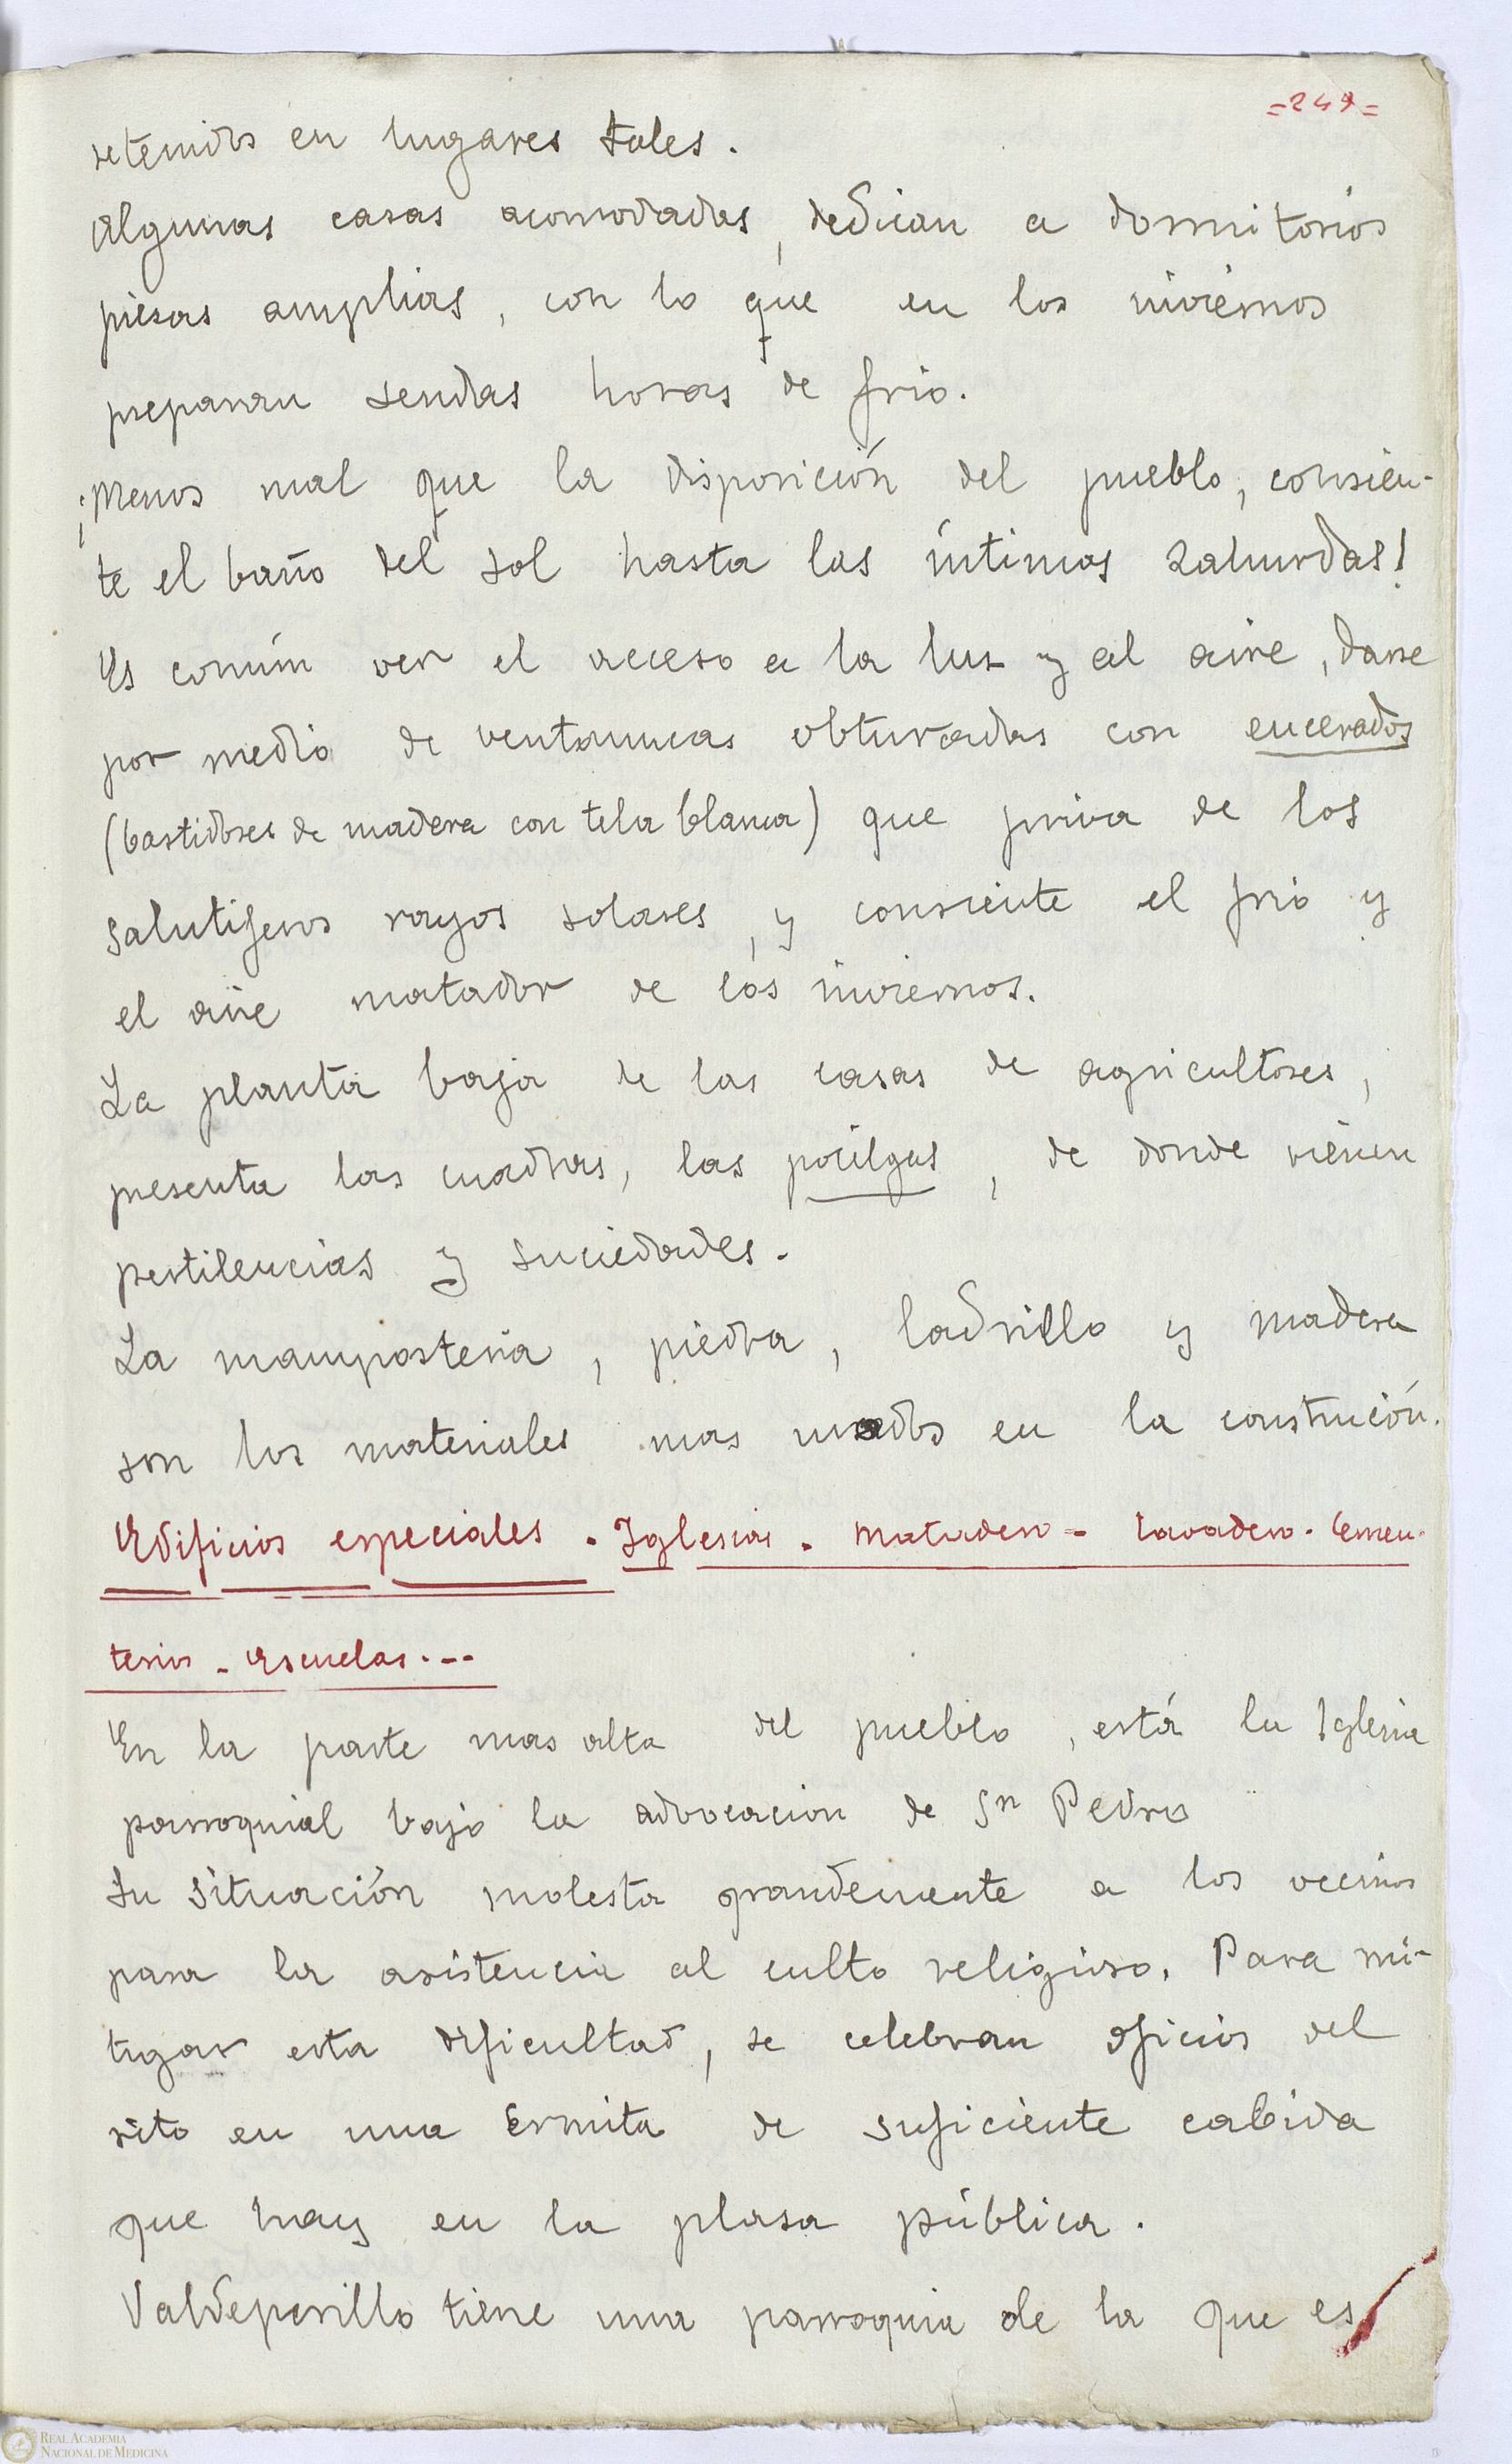 =249=
retenidos en lugares tales.
Algunas casas acomodadas, dedican a dormitorios
piesas amplias, con lo que en los inviernos
preparan sendas horas de frio.
¡Menos mal que la disposición del pueblo, consien-
te el baño del sol hasta las íntimas zahurdas!
Es común ver el acceso a la luz y al aire, darse
por medio de ventanucas obturadas con encerados
(bastidores de madera con tela blanca) que priva de los
salutiferos rayos solares, y consiente el frio y
el aire matador de los inviernos.
La planta baja de las casas de agricultores,
presenta las cuadras, las pocilgas, de donde vienen
pestilencias y suciedades.
La mamposteria, piedra, ladrillo y madera
son los materiales mas usados en la construción.
Edificios especiales. Iglesias. Matadero - Lavadero. Cemen-
terios - Escuelas...
En la parte mas alta del pueblo, está la Iglesia
parroquial bajo la advocacion de Sn Pedro
Su situación molesta grandemente a los vecinos
para la asistencia al culto religioso. Para mi-
tigar esta dificultad, se celebran oficios del
rito en una Ermita de suficiente cabida
que hay en la plasa pública.
Valdeperillo tiene una parroquia de la que es
REAL ACADEMIA
NACIONAL DE MEDICINA